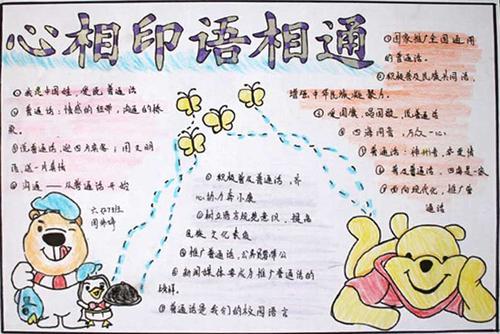 心相印语相通
①我是中国娃,爱说普通话
②普通话:情感的纽带,沟通的桥
梁。
③说普通话,迎四方宾客;用文明
语,送一片真情
④沟通——从普通话开始
六(2)班
①积极普及普通话,齐
心协力奔小康
②树立语言规范意识,提高
民族文化素质
③推广普通话,公务员带
④新闻媒体要成为推广普通话的
榜样。
⑤普通话是我们的校园语言
①国家推广全国通用
的普通话。
②积极普及民族共同语,
增强中华民族凝聚力。
爱国旗,唱国歌,说普通话
四海同音,万众一心
普通话:神州音,华夏情
普及普通话,四海是一家
面向现代化,推广普
通话